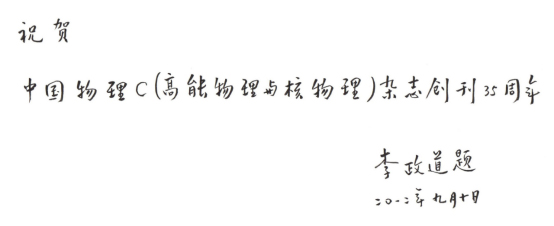 祝贺
中国物理C(高能物理与核物理)杂志创刊35周年
李政道题
二〇一二年九月十日